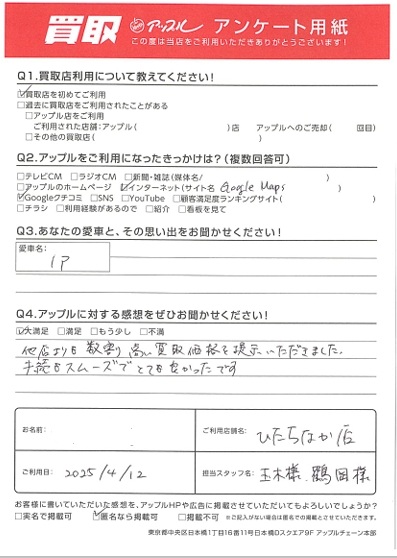 買取 アップル アンケート用紙
この度は当店をご利用いただきありがとうございます!
Q1.買取店利用について教えてください!
☑買取店を初めてご利用
□過去に買取店をご利用されたことがある
□アップル店をご利用
ご利用された店舗:アップル( )店 アップルへのご売却( 回目)
□その他の買取店( )
Q2.アップルをご利用になったきっかけは?(複数回答可)
□テレビCM □ラジオCM □新聞・雑誌(媒体名/ )
□アップルのホームページ ☑インターネット(サイト名 Google Maps )
☑Googleクチコミ □SNS □YouTube □顧客満足度ランキングサイト( )
□チラシ □利用経験があるので □紹介 □看板を見て
Q3.あなたの愛車と、その思い出をお聞かせください!
愛車名:
Q4.アップルに対する感想をぜひお聞かせください!
☑大満足 □満足 □もう少し □不満
他店よりも数割高い買取価格を提示いただきました。
手続もスムーズでとても良かったです
お名前:
ご利用店舗名: ひたちなか店
ご利用日: 2025/4/12
担当スタッフ名: 玉木様、鶴岡様
お客様に書いていただいた感想を、アップルHPや広告に掲載させていただいてもよろしいでしょうか?
□実名で掲載可 ☑匿名なら掲載可 □掲載不可 ※ご記入がない場合は匿名での掲載とさせていただきます。
東京都中央区日本橋1丁目16番11号日本橋Dスクエア9F アップルチェーン本部